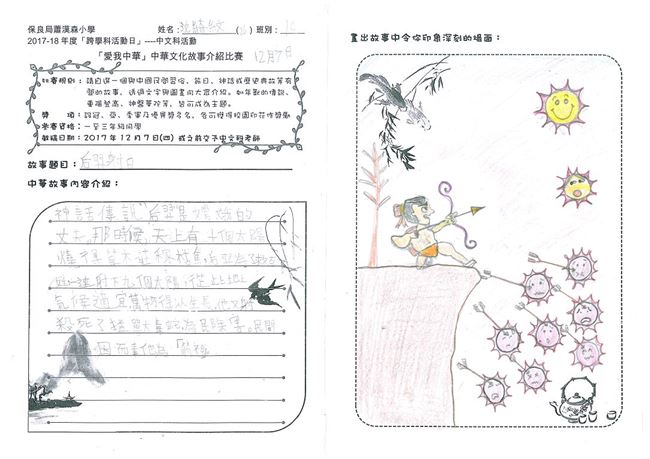 保良局蕭漢森小學
姓名： 班別：1C
2017-18 年度「跨學科活動日」----中文科活動
12月7日
「愛我中華」中華文化故事介紹比賽
比賽規則：請自選一個與中國民間習俗、節日、神話或歷史典故等有
關的故事，透過文字與圖畫向大家介紹。如年獸的傳說、
重陽登高、神醫華陀等，皆可成為主題。
獎　　項：設冠、亞、季軍及優異獎多名，各可獲得校園印花作獎勵
參賽資格：一至三年級同學
截稿日期：2017 年 12 月 7 日(四) 或之前交予中文科老師
故事題目：后羿射日
中華故事內容介紹：
神話傳說，后羿是嫦娥的
丈夫。那時候，天上有十個太陽
燒得草木
射下九個太陽，從此地
氣候適宜萬物得以生長。他又
殺死了 為民除害。民間
因而尊他為「箭神
畫出故事中令你印象深刻的場面：